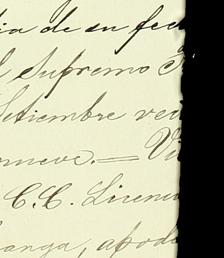 ia de su fec
l Supremo
Setiembre vei
nueve. — Vi
C. C. Licenci
anga, apode